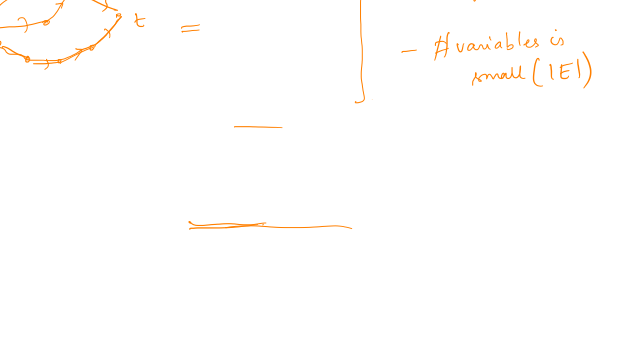 t
=
- # variables is
small (|E|)